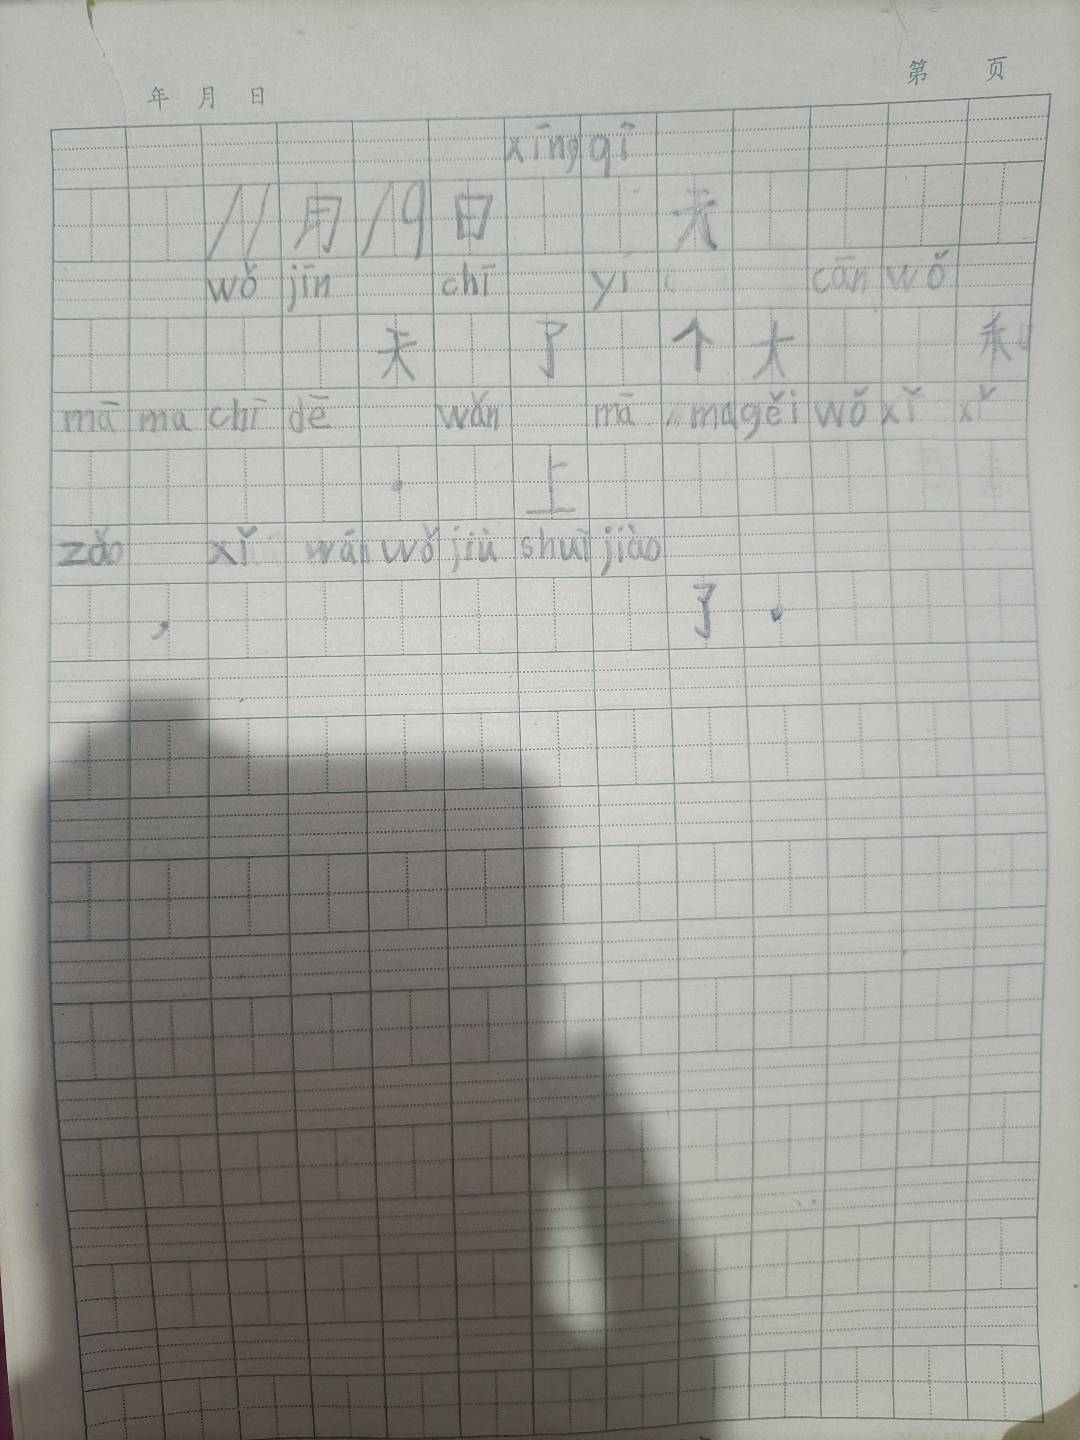 年 月 日 第 页
xīng qī
11月19日 天
wǒ jīn chī yí cān wǒ
天 了 个大 和
mā ma chī dē wǎn mā ma gěi wǒ xǐ xǐ
. 上
zǎo xǐ wán wǒ jiù shuì jiào
, 了.